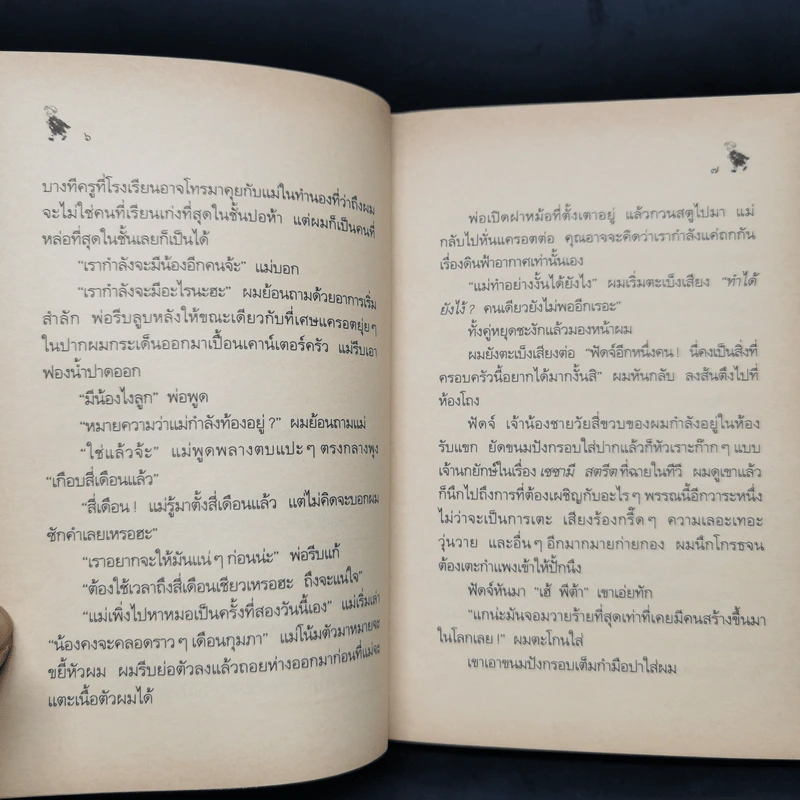 ๖
บางทีครูที่โรงเรียนอาจโทรมาคุยกับแม่ในทำนองที่ว่าถึงผม
จะไม่ใช่คนที่เรียนเก่งที่สุดในชั้นปอห้า แต่ผมก็เป็นคนที่
หล่อที่สุดในชั้นเลยก็เป็นได้
“เรากำลังจะมีน้องอีกคนจ้ะ” แม่บอก
“เรากำลังจะมีอะไรนะฮะ” ผมย้อนถามด้วยอาการเริ่ม
สำลัก พ่อรีบลูบหลังให้ขณะเดียวกับที่เศษแครอตยุ่ยๆ
ในปากผมกระเด็นออกมาเปื้อนเคาน์เตอร์ครัว แม่รีบเอา
ฟองน้ำปาดออก
“มีน้องไงลูก” พ่อพูด
“หมายความว่าแม่กำลังท้องอยู่?” ผมย้อนถามแม่
“ใช่แล้วจ้ะ” แม่พูดพลางตบแปะๆ ตรงกลางพุง
“เกือบสี่เดือนแล้ว”
“สี่เดือน! แม่รู้มาตั้งสี่เดือนแล้ว แต่ไม่คิดจะบอกผม
ซักคำเลยเหรอฮะ”
“เราอยากจะให้มันแน่ๆ ก่อนน่ะ” พ่อรีบแก้
“ต้องใช้เวลาถึงสี่เดือนเชียวเหรอฮะ ถึงจะแน่ใจ”
“แม่เพิ่งไปหาหมอเป็นครั้งที่สองวันนี้เอง” แม่เริ่มเล่า
“น้องคงจะคลอดราวๆ เดือนกุมภา” แม่โน้มตัวมาหมายจะ
ขยี้หัวผม ผมรีบย่อตัวลงแล้วถอยห่างออกมาก่อนที่แม่จะ
แตะเนื้อตัวผมได้
๗
พ่อเปิดฝาหม้อที่ตั้งเตาอยู่ แล้วกวนสตูไปมา แม่
กลับไปหั่นแครอตต่อ คุณอาจจะคิดว่าเรากำลังแค่ถกกัน
เรื่องดินฟ้าอากาศเท่านั้นเอง
“แม่ทำอย่างงั้นได้ยังไง” ผมเริ่มตะเบ็งเสียง “ทำได้
ยังไง้? คนเดียวยังไม่พออีกเรอะ”
ทั้งคู่หยุดชะงักแล้วมองหน้าผม
ผมยังตะเบ็งเสียงต่อ “ฟัดจ์อีกหนึ่งคน! นี่คงเป็นสิ่งที่
ครอบครัวนี้อยากได้มากงั้นสิ” ผมหันกลับ ลงส้นตึงไปที่
ห้องโถง
ฟัดจ์ เจ้าน้องชายวัยสี่ขวบของผมกำลังอยู่ในห้อง
รับแขก ยัดขนมปังกรอบใส่ปากแล้วก็หัวเราะก๊ากๆ แบบ
เจ้านกยักษ์ในเรื่อง เซซามี สตรีต ที่ฉายในทีวี ผมดูเขาแล้ว
ก็นึกไปถึงการที่ต้องเผชิญกับอะไรๆ พรรณนี้อีกวาระหนึ่ง
ไม่ว่าจะเป็นการเตะ เสียงร้องกรี๊ดๆ ความเลอะเทอะ
วุ่นวาย และอื่นๆ อีกมากมายก่ายกอง ผมนึกโกรธจน
ต้องเตะกำแพงเข้าให้ปั้กนึง
ฟัดจ์หันมา “เฮ้ พีต้า” เขาเอ่ยทัก
“แกน่ะมันจอมวายร้ายที่สุดเท่าที่เคยมีคนสร้างขึ้นมา
ในโลกเลย!” ผมตะโกนใส่
เขาเอาขนมปังกรอบเต็มกำมือปาใส่ผม